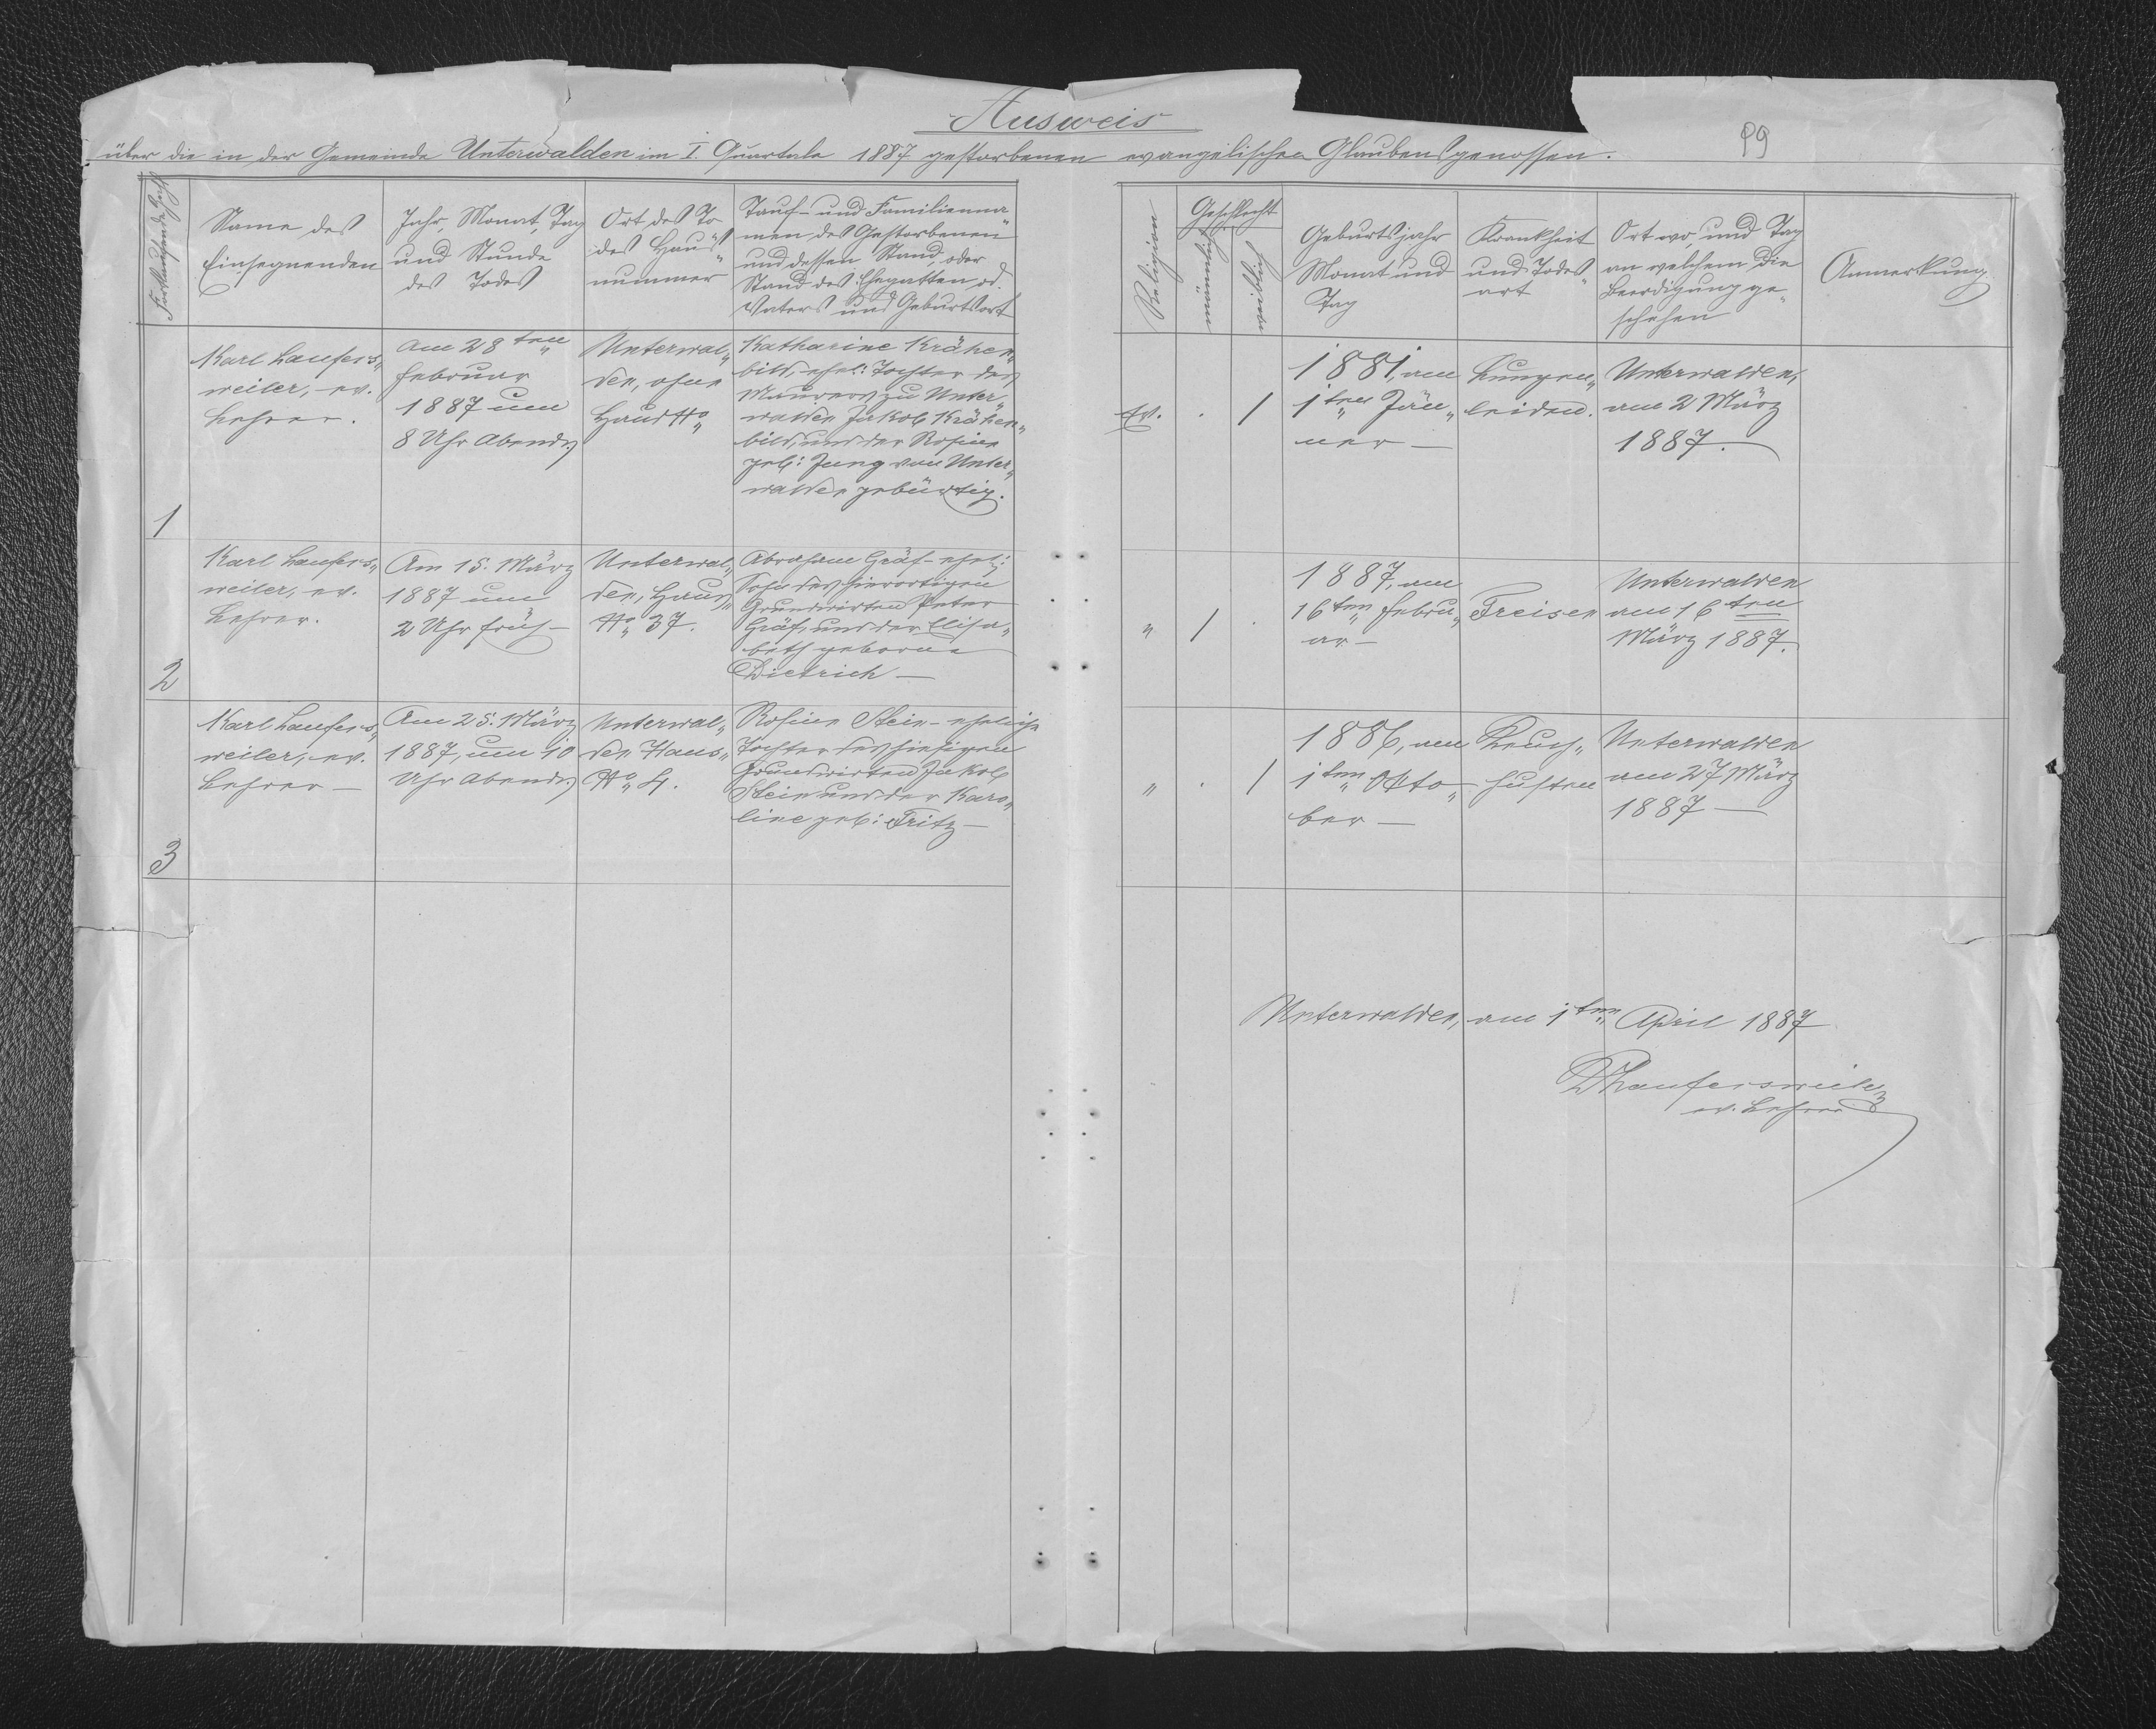 Ausweis
89
über die in der Gemeinde Unterwalden im I. Quartale 1887 gestorbenen evangelischen Glaubensgenossen.
Fortlaufende Zahl
Name des
Einsegnenden
Jahr, Monat, Tag
und Stunde
des Todes
Ort des To„
des Haus„
nummer
Tauf- und Familienna„
men des Gestorbenen
und dessen Stand, oder
Stand des Ehegatten, od.
Vaters und Geburtsort
Religion
Geschlecht
männlich
weiblich
Geburtsjahr
Monat und
Tag
Krankheit
und Todes„
art
Ort wo, und Tag
an welchem die
Beerdigung ge„
schehen
Anmerkung
1
Karl Laufers„
weiler, ev.
Lehrer.
Am 28ten
Februar
1887 um
8 Uhr Abends
Unterwal„
den, ohne
Haus No
Katharine Krähen„
bild, ehel: Tochter des
Maurers zu Unter„
walden Jakob Krähen„
bild und der Rosine
geb: Jung von Unter„
walden gebürtig.
ev.
.
1
1881, am
1ten Jän„
ner —
Lungen„
leiden.
Unterwalden,
am 2 März
1887.
2
Karl Laufers„
weiler, ev.
Lehrer.
Am 15. März
1887 um
2 Uhr früh —
Unterwal„
den, Haus
No 37.
Abraham Gräf - ehel:
Sohn des hierortigen
Grundwirten Peter
Gräf, und der Elisa„
beth geborene
Dietrich —
„
1
.
1887, am
16ten Febru„
ar —
Freisen
Unterwalden
am 16ten
März 1887.
3
Karl Laufers„
weiler, ev.
Lehrer —
Am 25. März
1887, um 10
Uhr Abends
Unterwal„
den Haus„
No 4.
Rosine Stein - eheliche
Tochter des hiesigen
Grundwirten Jakob
Stein und der Karo„
line geb: Fritz —
„
.
1
1886, am
1ten Okto„
ber —
Keuch„
husten
Unterwalden
am 27 März
1887 —
Unterwalden, am 1ten April 1887
Laufersweiler
ev. Lehrer